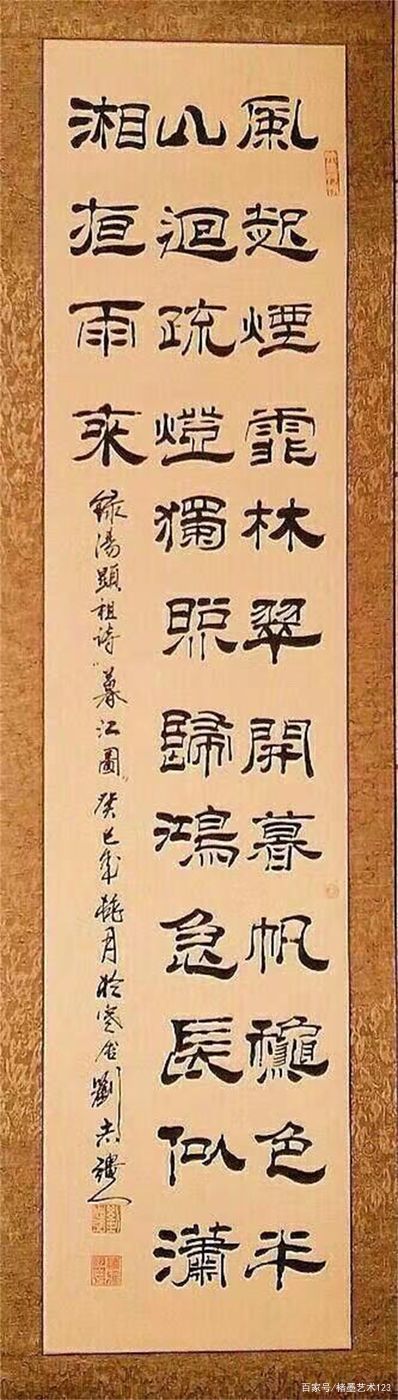 風起煙霏林翠開暮帆龝色半
山迴疏燈獨照歸鴻急長似瀟
湘夜雨來
錄湯顯祖詩"暮江圖"癸巳年桃月於寒舍劉志
百家号/楮墨艺术123